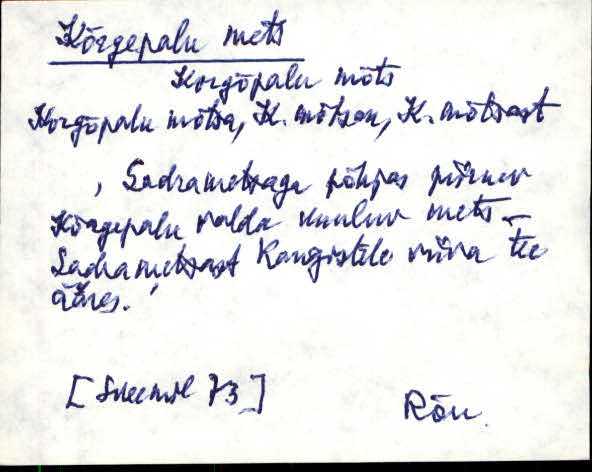 Kõrgepalu mets
Korgõpalu mõts
Korgõpalu mõtsa, K. mõtsan, K. mõtsast
, Sadrametsaga põhjas piirnev
Kõrgepalu valda kuuluv mets –
Sadrametsast Kangistile viiva tee
ääres.'
[ 73]
Rõu.